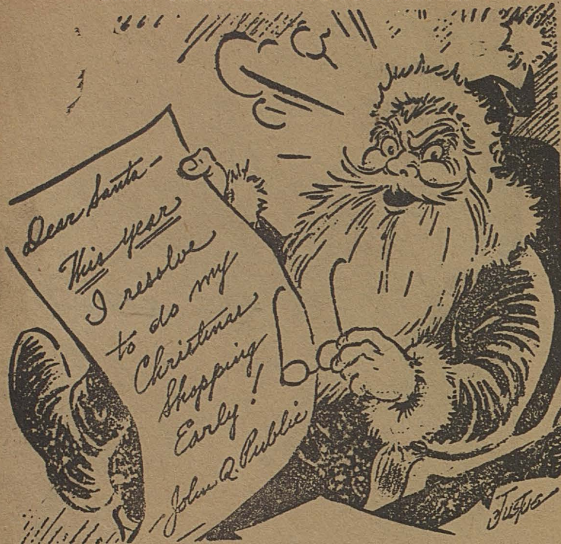 Dear Santa—
This year
I resolve
to do my
Christmas
Shopping
Early!
—John Q. Public
Justus